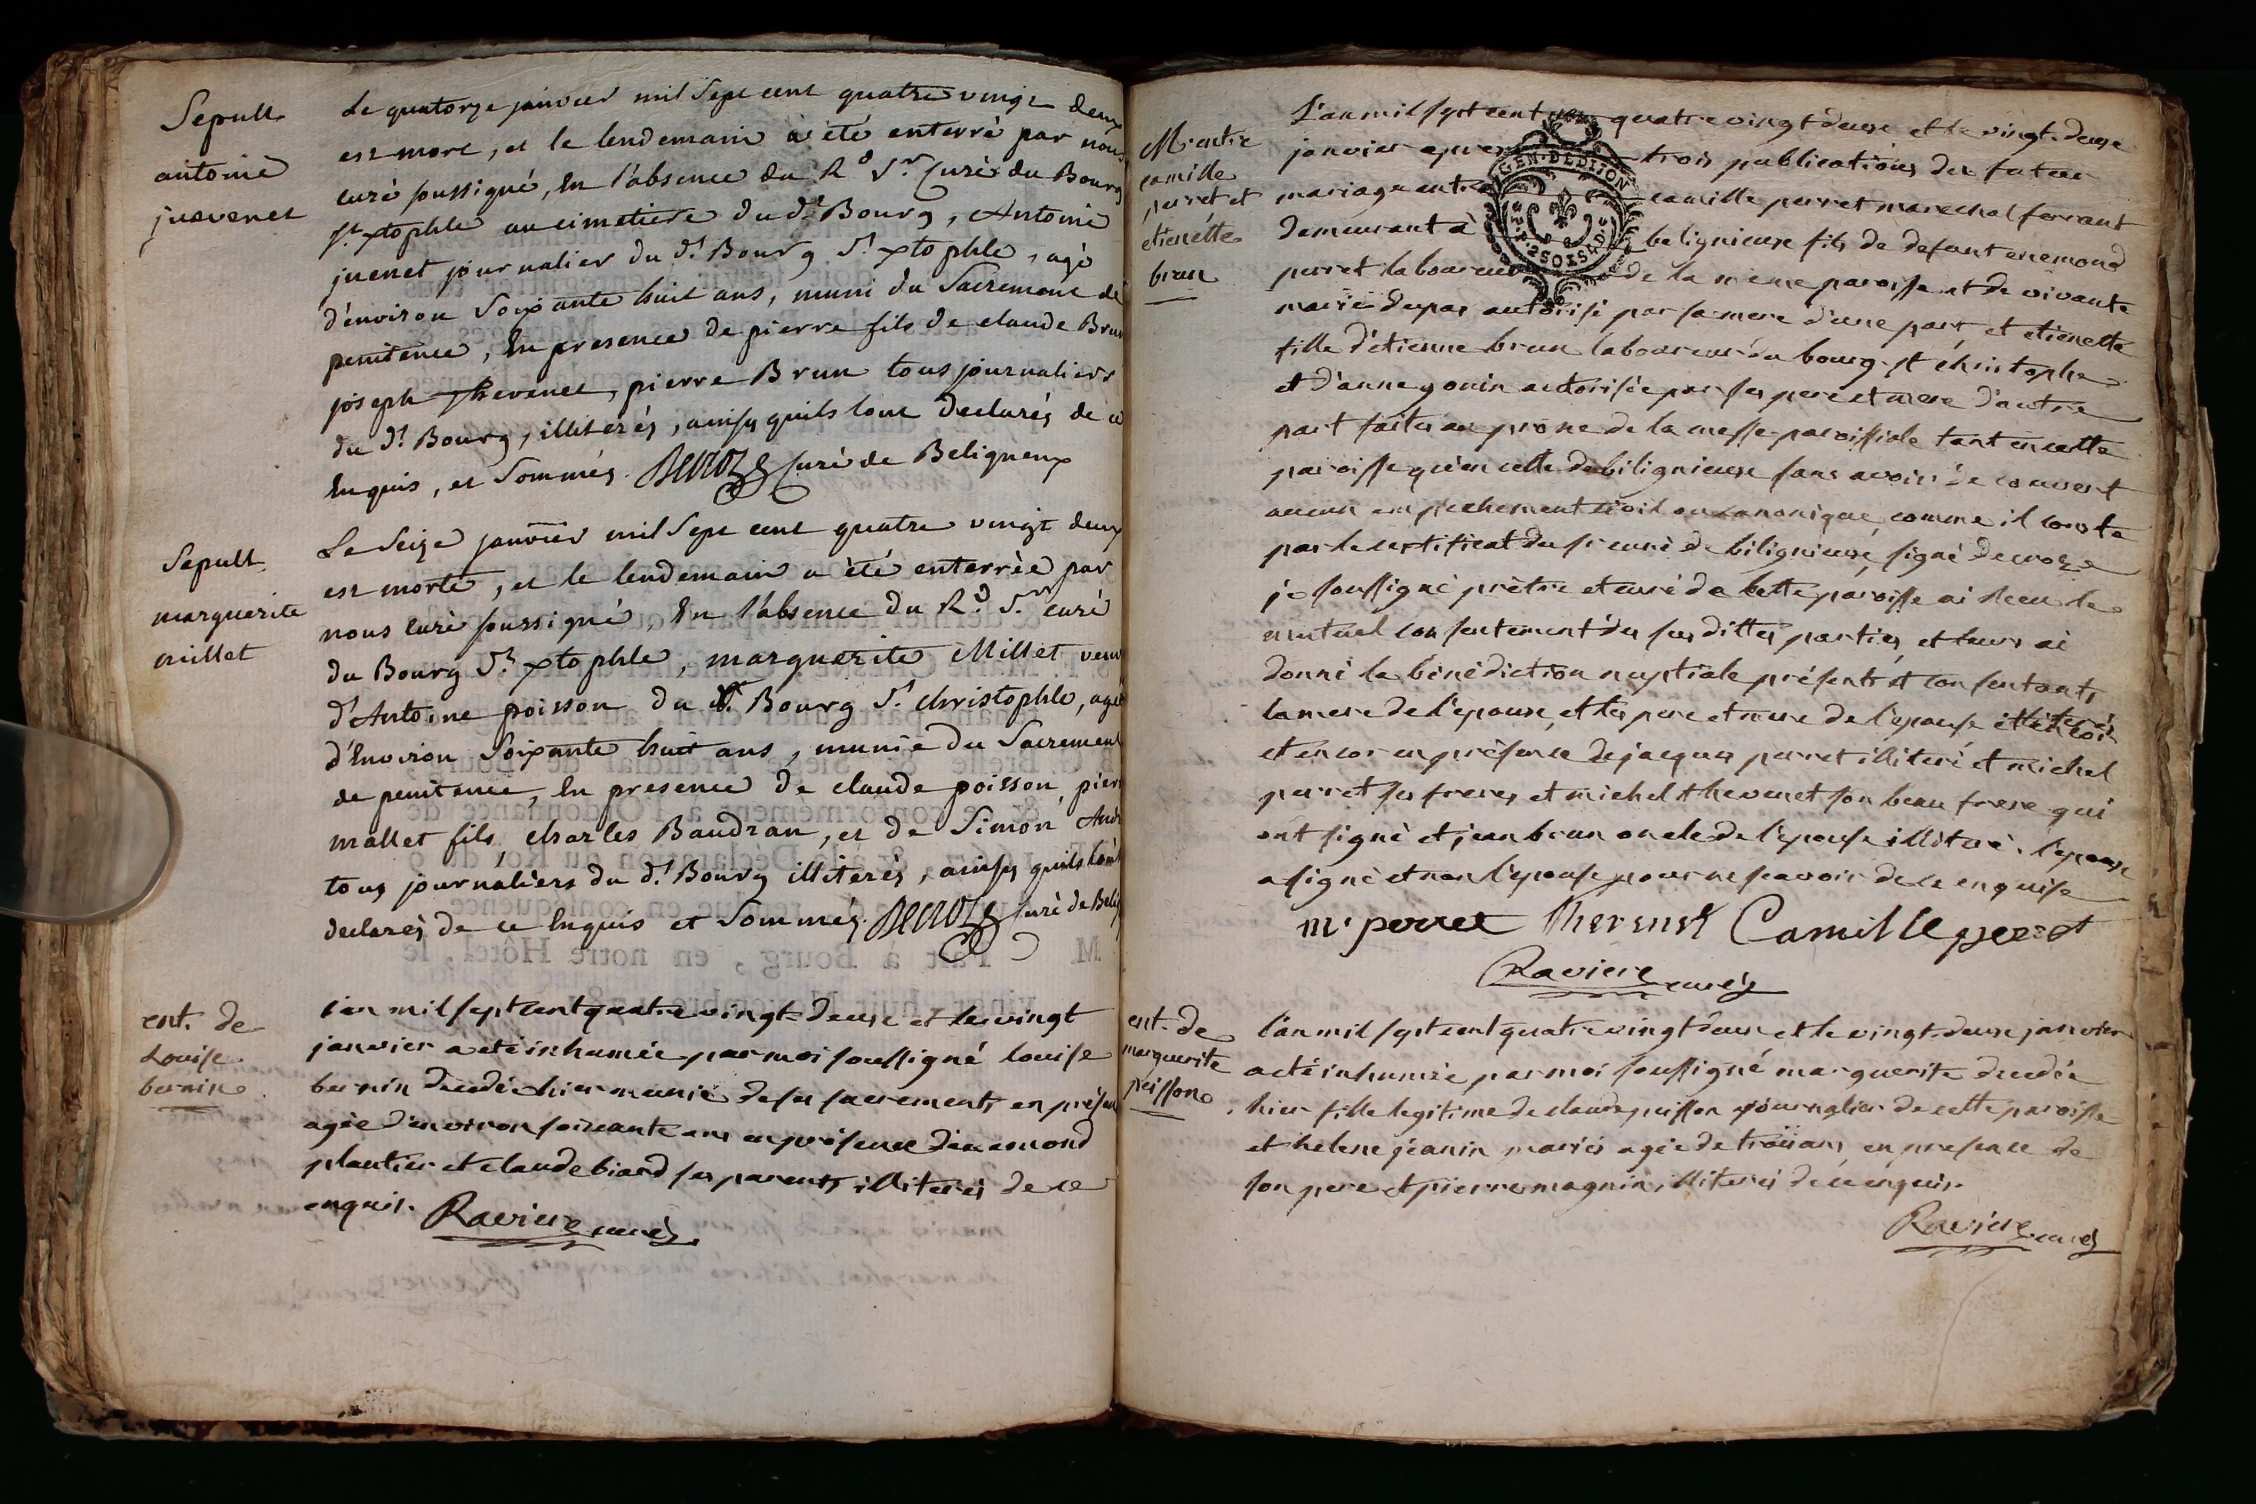 Sepult.
antoine
juevenet
Le quatorze janvier mil Sept cent quatre vingt deux
est mort, et le lendemain a été enterré par nous
curé soussigné, En l'absence du Rd Sr Curé du Bourg
St xtophle au cimetiere du dt Bourg, Antoine
juenet journalier du dt Bourg St xtophle, agé
d'environ Soixante huit ans, muni du Sacrement de
penitence, En presence de pierre fils de claude Brun
joseph Thevenet, pierre Brun tous journaliers
du dt Bourg, illiterés, ainsy quils l'ont declarés de ce
Enquis, et Sommés. Decroze Curé de Beligneux
Sepult.
marguerite
millet
Le Seize janvier mil Sept cent quatre vingt deux
est morte, et le lendemain a été enterrée par
nous curé soussigné, En l'absence du Rd Sr curé
du Bourg St xtophle, marguerite Millet veuve
d'Antoine poisson du dt Bourg St christophle, agée
d'Environ Soixante huit ans, munie du Sacrement
de penitence, En presence de claude poisson, pierre
mallet fils, charles Baudran, et de Simon
tous journaliers du dt Bourg illiterés, ainsy quils l'ont
declarés de ce Enquis et Sommés. Decroze Curé de
ent. de
Louise
bernin
L'an mil sept cent quatre vingt-deux et le vingt
janvier a eté inhumée par moi soussigné louise
bernin decedée hier munie de ses sacrements en présen
agée d'environ soixante ans en présence d'ennemond
plantier et claude biard ses parents illiterés de ce
enquis. Raviere curé
M. entre
camille
perret et
etienette
brun
L'an mil sept cent quatre vingt deux et le vingt-deux
janvier apres trois publications du futur
mariage entre camille perret marechal ferrant
demeurant à belignieux fils de defunt enemond
perret laboureur de la meme paroisse et de vivante
marie dupas autorisé par sa mere d'une part, et etienette
fille d'etienne brun laboureur du bourg-st christophe
et d'anne gonin autorisée par ses pere et mere d'autre
part faites au prone de la messe paroissiale tant en cette
paroisse qu'en celle de bilignieux sans avoir découvert
aucun empechement civil ou canonique comme il conste
par le certificat du sr curé de bilignieux, signé decroze
je soussigné prètre et curé de cette paroisse ai recu le
mutuel consentement des susdittes parties, et leurs ai
donné la bénédiction nuptiale présents et consentants
la mere de l'epoux, et les pere et mere de l'epouse illiterés
et encor en présence de jacques perret illiteré et michel
perret ses freres et michel thevenet son beau frere qui
ont signé et jean brun oncle de l'epouse illiteré. l'epoux
a signé et non l'epouse pour ne scavoir de ce enquise
m. perret Thevenet Camille perret
Raviere curé
ent. de
marguerite
poisson
l'an mil sept cent quatre vingt deux et le vingt-deux janvier
a eté inhumée par moi soussigné marguerite decedée
hier fille legitime de claude poisson journalier de cette paroisse
et helene jeanin mariés agée de trois ans en presence de
son pere et pierre magnin illiterés de ce enquis.
Raviere curé
GEN. DE DIJON